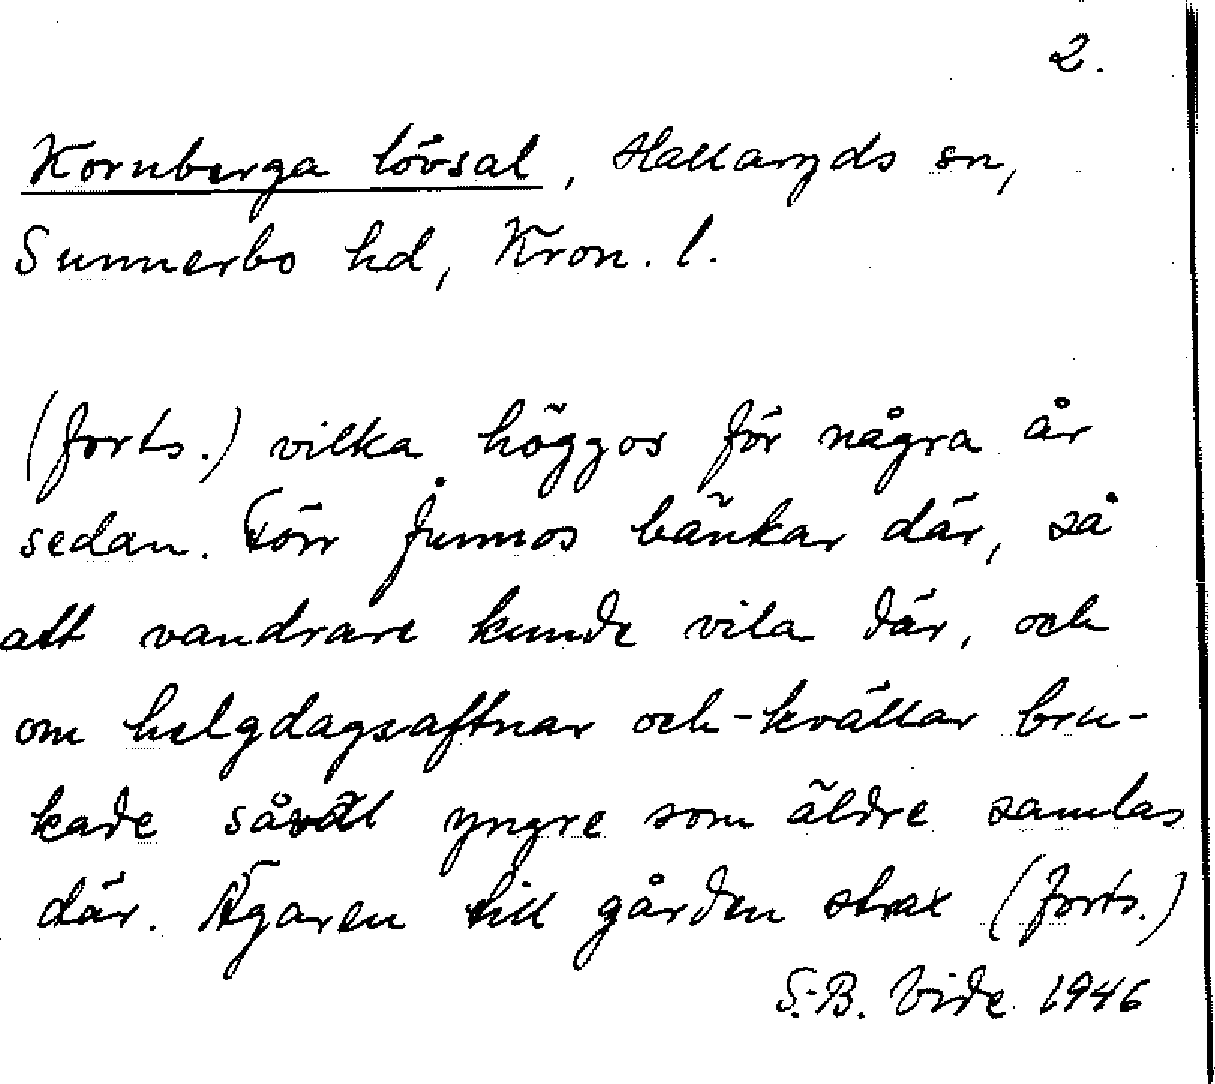 2.
Kornberga lövsal, Hallaryds sn,
Sunnerbo hd, Kron. l.
(forts.) vilka höggos för några år
sedan. Förr funnos bänkar där, så
att vandrare kunde vila där, och
om helgdagsaftnar och -kvällar bru-
kade såväl yngre som äldre samlas
där. Ägaren till gården strax (forts.)
S.-B. Vide 1946